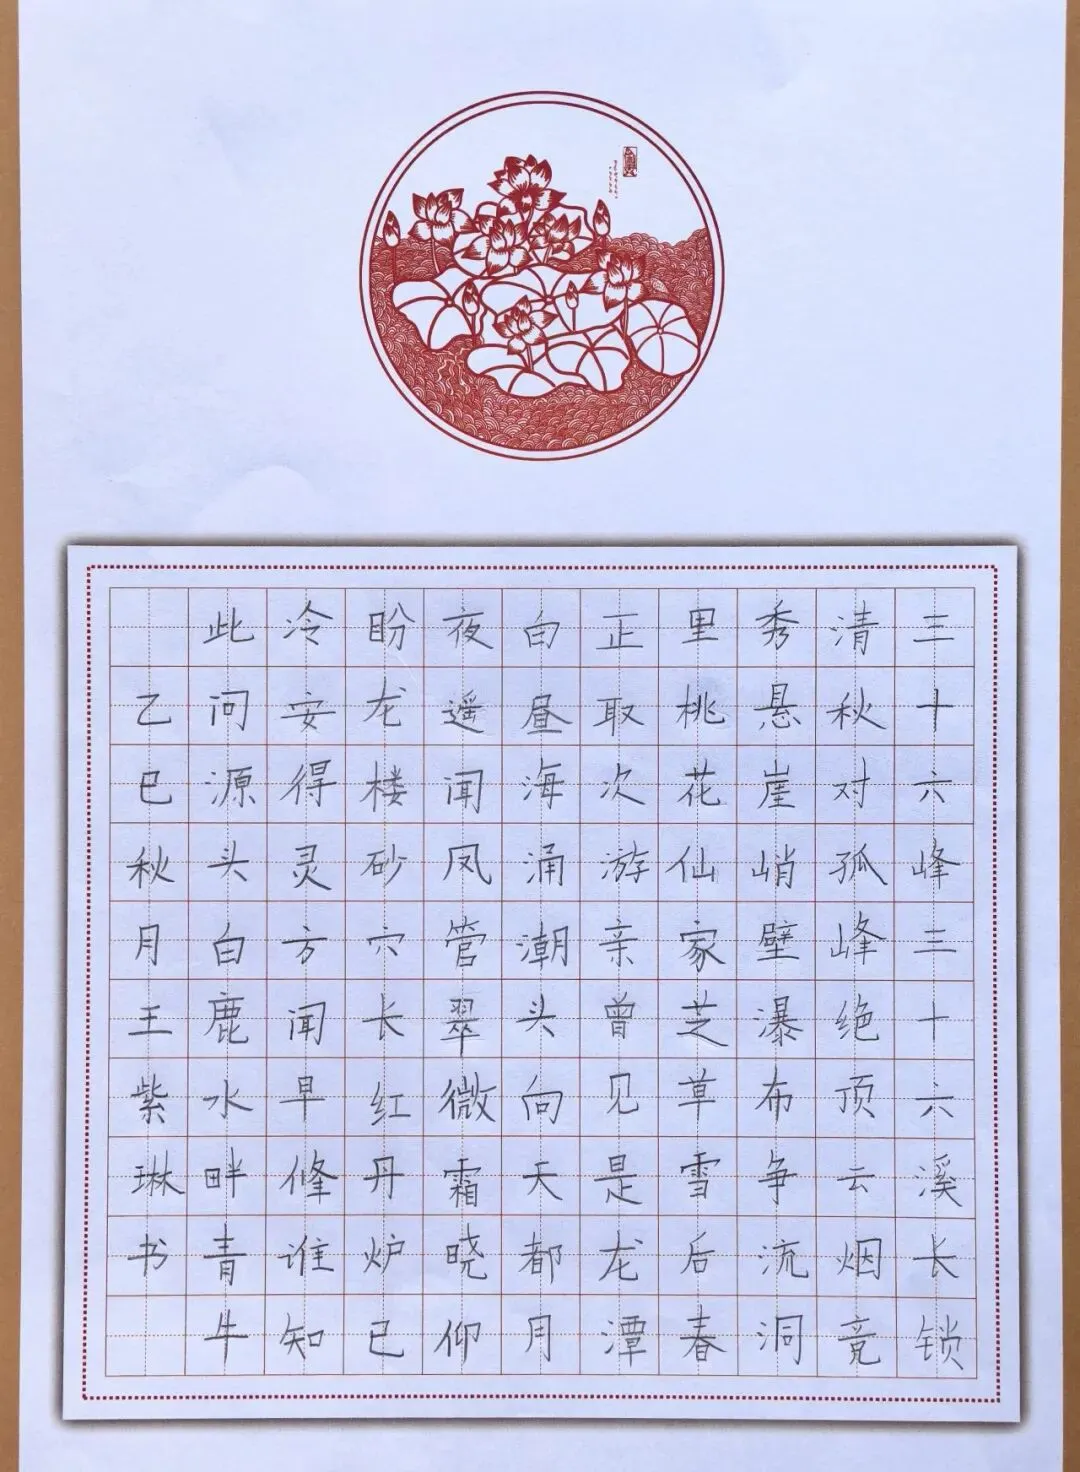 三十六峰三十六溪长锁
清秋对孤峰绝顶云烟竞
秀悬崖峭壁瀑布争流洞
里桃花仙家芝草雪后春
正取次游亲曾见是龙潭
白昼海涌潮头向天都月
夜遥闻凤管翠微霜晓仰
盼龙楼砂穴长红丹炉已
冷安得灵方闻早修谁知
此问源头白鹿水畔青牛
乙巳秋月王紫琳书